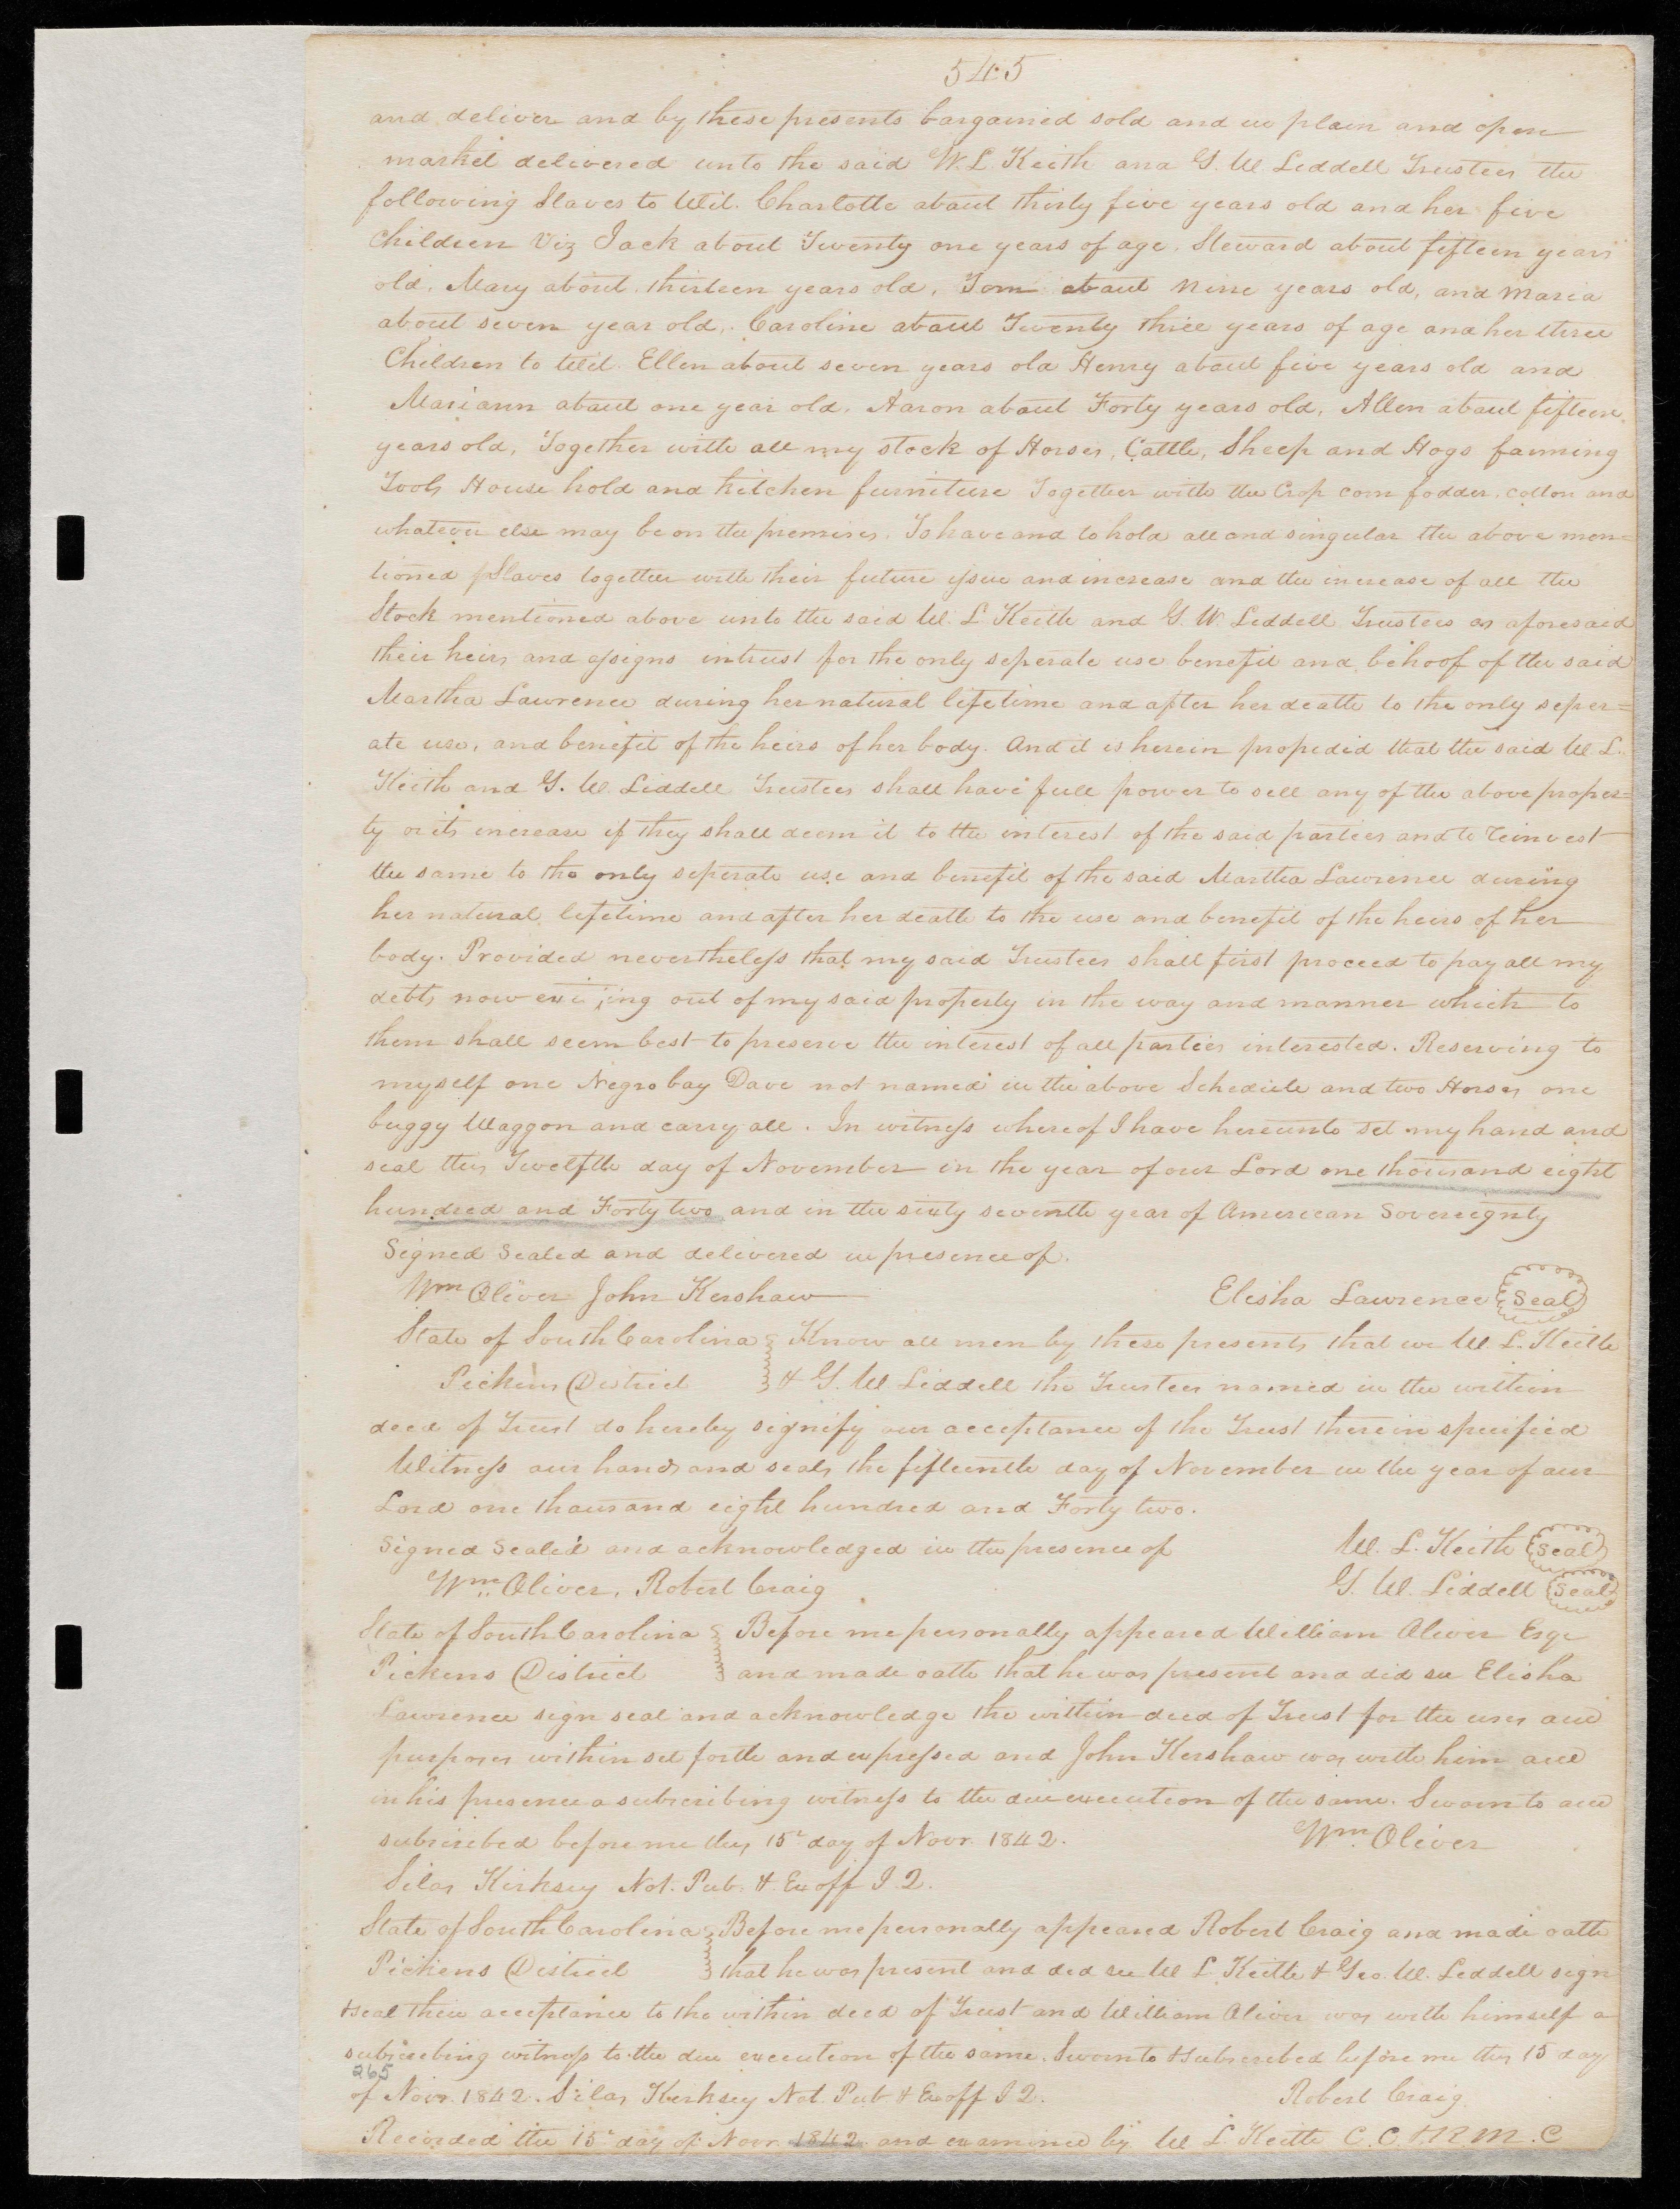 545
and deliver and by these presents bargained sold and in plain and open
market delivered unto the said W. L. Keith and G. W. Leddell Trustees the
following Slaves to Wit. Charlotte about thirty five years old and her five
Children Viz Jack about Twenty one years of age, Steward about fifteen years
old, Mary about thirteen years old, Tom about nine years old, and Maria
about seven year old, Caroline about Twenty three years of age and her three
Children to Wit. Ellen about seven years old Henry about five years old and
Mariann about one year old, Aaron about Forty years old, Allen about fifteen
years old, Together with all my stock of Horses, Cattle, Sheep and Hogs farming
Tools House hold and kitchen furniture Together with the Crop corn fodder, cotton and
whatever else may be on the premises. To have and to hold all and singular the above men=
tioned Slaves together with their future issue and increase and the increase of all the
Stock mentioned above unto the said W. L. Keith and G. W. Leddell Trustees as aforesaid
their heirs and assigns intrust for the only seperate use benefit and behoof of the said
Martha Lawrence during her natural lifetime and after her death to the only seper=
ate use, and benefit of the heirs of her body. And it is herein provided that the said W. L.
Keith and G. W. Liddell Trustees shall have full power to sell any of the above proper=
ty or its increase if they shall deem it to the interest of the said parties and to reinvest
the same to the only seperate use and benefit of the said Martha Lawrence during
her natural lifetime and after her death to the use and benefit of the heirs of her
body. Provided nevertheless that my said Trustees shall first proceed to pay all my
debts now out of my said property in the way and manner which to
them shall seem best to preserve the interest of all parties interested. Reserving to
myself one Negro boy Dave not named in the above Schedule and two Horses one
buggy Waggon and carry all. In witness whereof I have hereunto set my hand and
seal this Twelfth day of November in the year of our Lord one thousand eight
hundred and Forty two and in the sixty seventh year of American Sovereignty
Signed Sealed and delivered in presence of.
Wm Oliver John Kershaw Elisha Lawrence Seal
State of South Carolina Know all men by these presents that we W. L. Keith
Pickens District & G. W Liddell the Trustees named in the within
deed of Trust do hereby signify our acceptance of the Trust therein specified
Witness our hands and seals the fifteenth day of November in the year of our
Lord one thousand eight hundred and Forty two.
Signed Sealed and acknowledged in the presence of W. L. Keith Seal
Wm Oliver, Robert Craig G. W. Liddell Seal
State of South Carolina Before me personally appeared William Oliver Esqr
Pickens District and made oath that he was present and did see Elisha
Lawrence sign seal and acknowledge the within deed of Trust for the uses and
purposes within set forth and expressed and John Kershaw was with him and
in his presence a subscribing witness to the due execution of the same. Sworn to and
subscribed before me this 15th day of Novr. 1842. Wm. Oliver
Silas Kirksey Not. Pub. & Ex off J. Q.
State of South Carolina Before me personally appeared Robert Craig and made oath
Pickens District that he was present and did see W L. Keith & Geo. W. Leddell sign
& seal their acceptance to the within deed of Trust and William Oliver was with himself a
subscribing witness to the due execution of the same. Sworn to & subscribed before me this 15 day
265
of Novr. 1842. Silas Kirksey Not. Pub & Ex off J Q. Robert Craig
Recorded the 15th day of Novr 1842 and examined by W L Keith C. C & R M. C